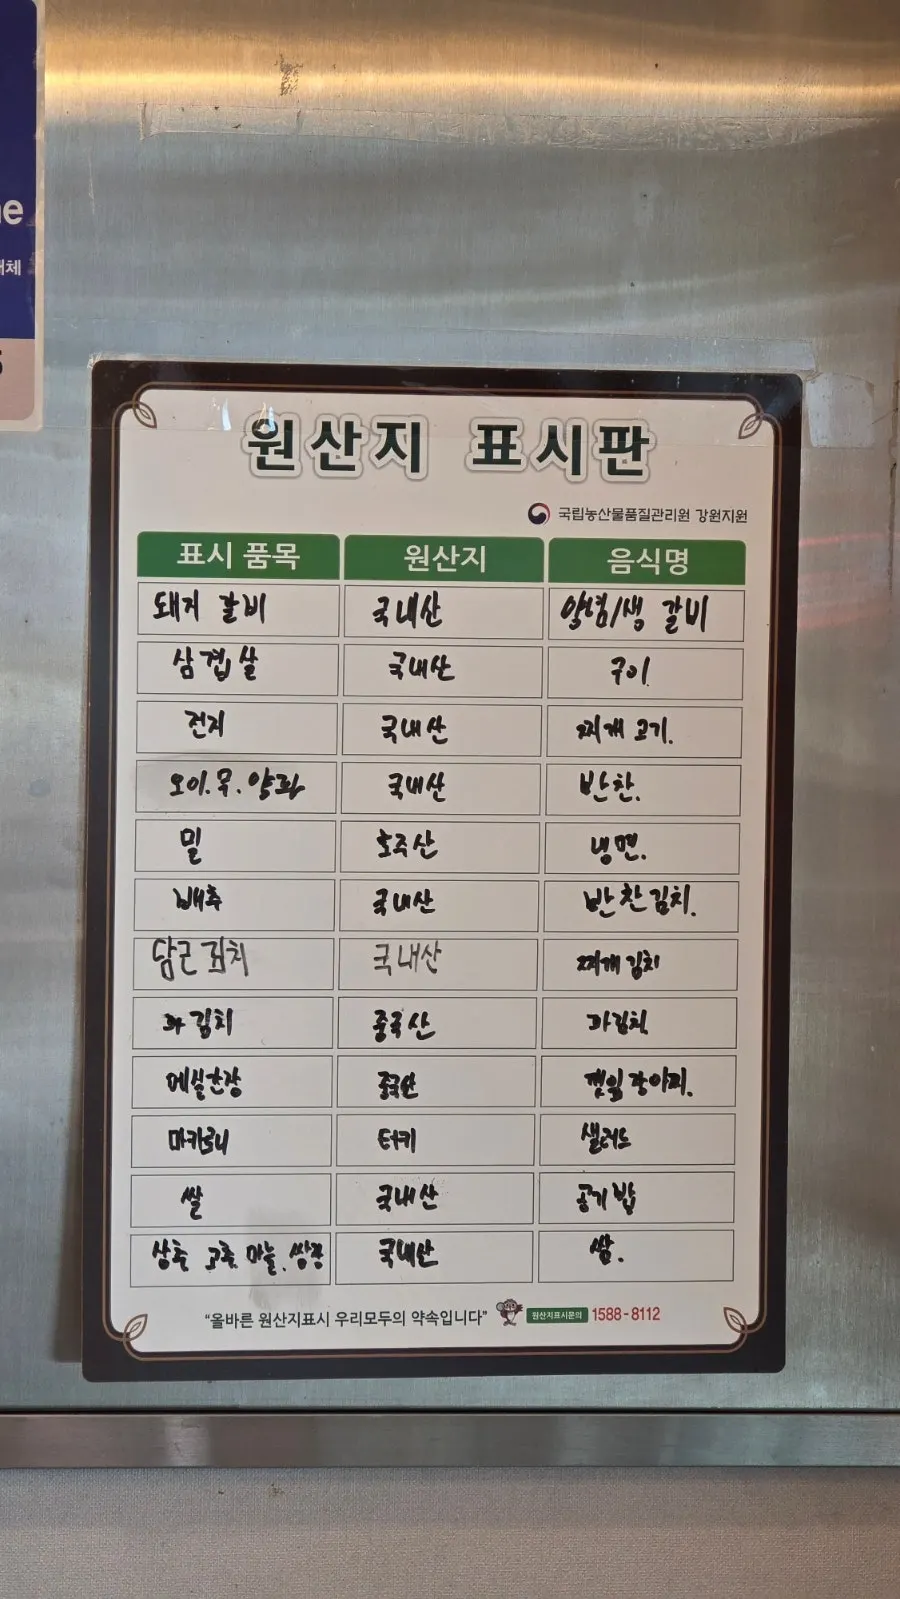 ne
체
5
원산지 표시판
국립농산물품질관리원 강원지원
표시 품목 원산지 음식명
돼지 갈비 국내산 양념/생 갈비
삼겹살 국내산 구이.
전지 국내산 찌개 고기.
오이.무.양파 국내산 반찬.
밀 호주산 냉면.
배추 국내산 반찬김치.
담근 김치 국내산 찌개 김치
파김치 중국산 파김치
메실간장 중국산 깻잎장아찌.
마카로니 터키 샐러드
쌀 국내산 공기밥
상추 고추. 마늘. 쌈장 국내산 쌈.
“올바른 원산지표시 우리모두의 약속입니다” 원산지표시문의 1588-8112